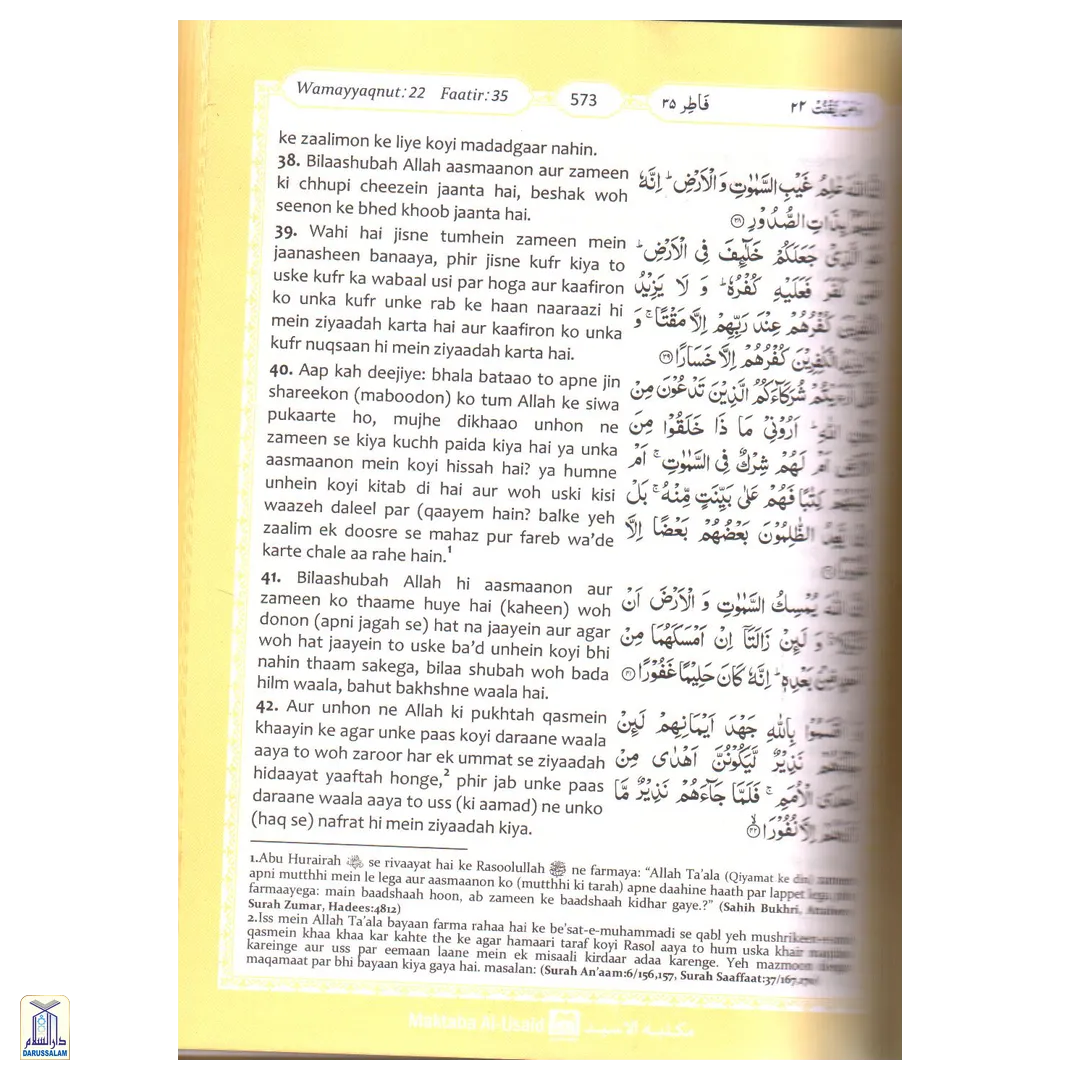 Wamayyaqnut: 22 Faatir: 35
573
فَاطِر ٣٥
٢٢
ke zaalimon ke liye koyi madadgaar nahin.
38. Bilaashubah Allah aasmaanon aur zameen
ki chhupi cheezein jaanta hai, beshak woh
seenon ke bhed khoob jaanta hai.
39. Wahi hai jisne tumhein zameen mein
jaanasheen banaaya, phir jisne kufr kiya to
uske kufr ka wabaal usi par hoga aur kaafiron
ko unka kufr unke rab ke haan naaraazi hi
mein ziyaadah karta hai aur kaafiron ko unka
kufr nuqsaan hi mein ziyaadah karta hai.
40. Aap kah deejiye: bhala bataao to apne jin
shareekon (maboodon) ko tum Allah ke siwa
pukaarte ho, mujhe dikhaao unhon ne
zameen se kiya kuchh paida kiya hai ya unka
aasmaanon mein koyi hissah hai? ya humne
unhein koyi kitab di hai aur woh uski kisi
waazeh daleel par (qaayem hain? balke yeh
zaalim ek doosre se mahaz pur fareb wa'de
karte chale aa rahe hain.1
41. Bilaashubah Allah hi aasmaanon aur
zameen ko thaame huye hai (kaheen) woh
donon (apni jagah se) hat na jaayein aur agar
woh hat jaayein to uske ba'd unhein koyi bhi
nahin thaam sakega, bilaa shubah woh bada
hilm waala, bahut bakhshne waala hai.
42. Aur unhon ne Allah ki pukhtah qasmein
khaayin ke agar unke paas koyi daraane waala
aaya to woh zaroor har ek ummat se ziyaadah
hidaayat yaaftah honge,2 phir jab unke paas
daraane waala aaya to uss (ki aamad) ne unko
(haq se) nafrat hi mein ziyaadah kiya.
غَيْبِ السَّمٰوٰتِ وَ الْاَرْضِ ؕ اِنَّهٗ
بِذَاتِ الصُّدُوْرِ ۝۳۸
جَعَلَكُمْ خَلٰٓئِفَ فِي الْاَرْضِ ؕ
فَعَلَيْهِ كُفْرُهٗ ؕ وَ لَا يَزِيْدُ
كُفْرُهُمْ عِنْدَ رَبِّهِمْ اِلَّا مَقْتًا ۚ وَ
الْكٰفِرِيْنَ كُفْرُهُمْ اِلَّا خَسَارًا ۝۳۹
شُرَكَآءَكُمُ الَّذِيْنَ تَدْعُوْنَ مِنْ
اللّٰهِ ؕ اَرُوْنِيْ مَا ذَا خَلَقُوْا مِنَ
اَمْ لَهُمْ شِرْكٌ فِي السَّمٰوٰتِ ۚ اَمْ
كِتٰبًا فَهُمْ عَلٰى بَيِّنَتٍ مِّنْهُ ۚ بَلْ
الظّٰلِمُوْنَ بَعْضُهُمْ بَعْضًا اِلَّا
يُمْسِكُ السَّمٰوٰتِ وَ الْاَرْضَ اَنْ
وَ لَىِٕنْ زَالَتَاۤ اِنْ اَمْسَكَهُمَا مِنْ
بَعْدِهٖ ؕ اِنَّهٗ كَانَ حَلِيْمًا غَفُوْرًا ۝۴۱
بِاللّٰهِ جَهْدَ اَيْمَانِهِمْ لَىِٕنْ
نَذِيْرٌ لَّيَكُوْنُنَّ اَهْدٰى مِنْ
الْاُمَمِ ۚ فَلَمَّا جَآءَهُمْ نَذِيْرٌ مَّا
اِلَّا نُفُوْرًا ۝۴۲
1.Abu Hurairah ﷺ se rivaayat hai ke Rasoolullah ﷺ ne farmaya: "Allah Ta'ala (Qiyamat ke din)
apni mutthhi mein le lega aur aasmaanon ko (mutthhi ki tarah) apne daahine haath par lappet lega,
farmaayega: main baadshaah hoon, ab zameen ke baadshaah kidhar gaye.?" (Sahih Bukhri,
Surah Zumar, Hadees:4812)
2.Iss mein Allah Ta'ala bayaan farma rahaa hai ke be'sat-e-muhammadi se qabl yeh
qasmein khaa khaa kar kahte the ke agar hamaari taraf koyi Rasol aaya to hum uska khair
kareinge aur uss par eemaan laane mein ek misaali kirdaar adaa karenge. Yeh mazmoon
maqamaat par bhi bayaan kiya gaya hai. masalan: (Surah An'aam:6/156,157, Surah Saaffaat:37/167
Maktaba Al-Usaid
دارالسلام
DARUSSALAM